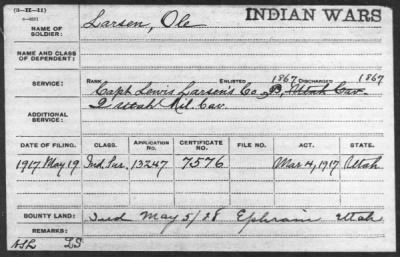 (3-IX-11)
INDIAN WARS
NAME OF SOLDIER: Larsen, Ole
NAME AND CLASS OF DEPENDENT:
SERVICE: RANK ENLISTED 1867 DISCHARGED 1867
Capt Lewis Larsen's Co. B, Utah Cav.
ADDITIONAL SERVICE: Utah Mil. Cav.
DATE OF FILING. CLASS. APPLICATION NO. CERTIFICATE NO. FILE NO. ACT. STATE.
1917 May 19 Ind. Sur. 13247 7576 Mar 4, 1917 Utah
BOUNTY LAND: Died May 5/28 Ephraim Utah
REMARKS: